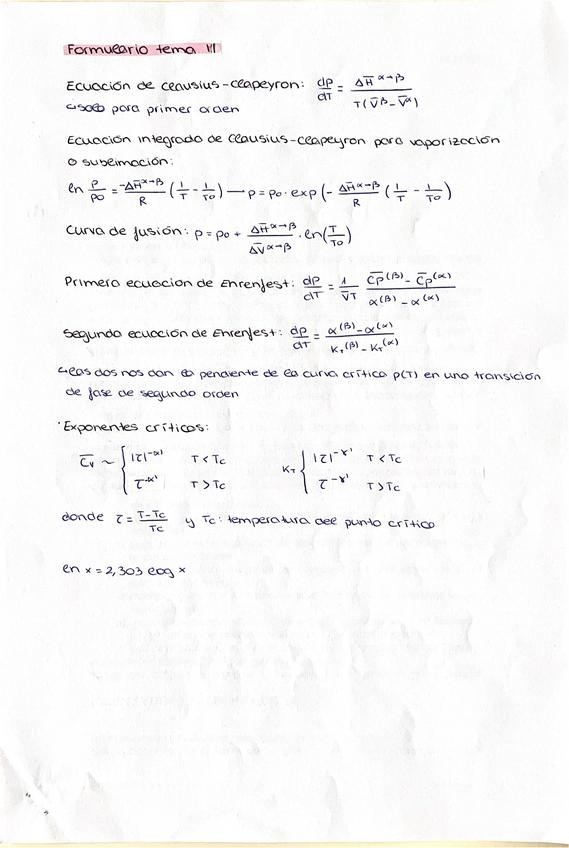 Formulario tema 11
Ecuación de clausius-clapeyron: dp/dT = ΔH̄^(α→β) / T(V̄^β - V̄^α)
↳solo para primer orden
Ecuación integrada de clausius-clapeyron para vaporización
o sublimación:
ln p/p₀ = -ΔH̄^(α→β)/R (1/T - 1/T₀) → p = p₀ · exp(- ΔH̄^(α→β)/R (1/T - 1/T₀))
Curva de fusión: p = p₀ + ΔH̄^(α→β)/ΔV̄^(α→β) · ln(T/T₀)
Primera ecuacion de Enrenfest: dp/dT = 1/V̄T · (C̄p^(β) - C̄p^(α)) / (α^(β) - α^(α))
Segunda ecuación de Enrenfest: dp/dT = (α^(β) - α^(α)) / (K_T^(β) - K_T^(α))
↳las dos nos dan la pendiente de la curva crítica p(T) en una transición
de fase de segundo orden
·Exponentes críticos:
C̄v ~ { |τ|^(-α') T < Tc K_T { |τ|^(-γ') T < Tc
τ^(-α') T > Tc τ^(-γ') T > Tc
donde τ = (T-Tc)/Tc y Tc: temperatura del punto crítico
ln x = 2,303 log x